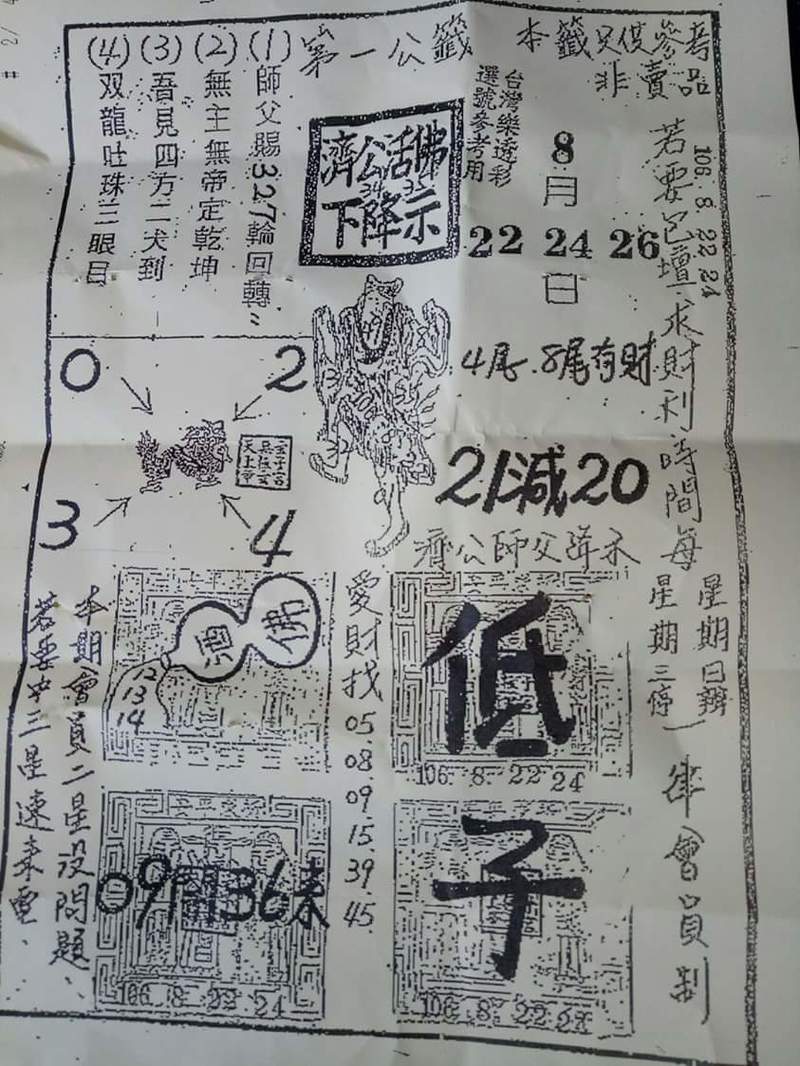 第一公籤
本籤只供參考
非賣品
(1)師父賜327輪回轉
(2)無主無帝定乾坤
(3)吾見四方二犬到
(4)双龍吐珠三眼目
濟公活佛
34 32
下降示
台灣樂透彩
選號參考用
8月
22 24 26
日
106. 8. 22 24
若要包壇求財利時間每
星期日辦
星期三停
一律會員制
4尾.8尾有財
21減20
濟公師父降示
0
2
3
4
愛財找
05
08
09
15
39
45
酒
佛
12
13
14
低
106. 8. 22 24
09開36來
106. 8. 22 24
子
106. 8. 22 24
本期會員二星沒問題、
若要中三星速來電、